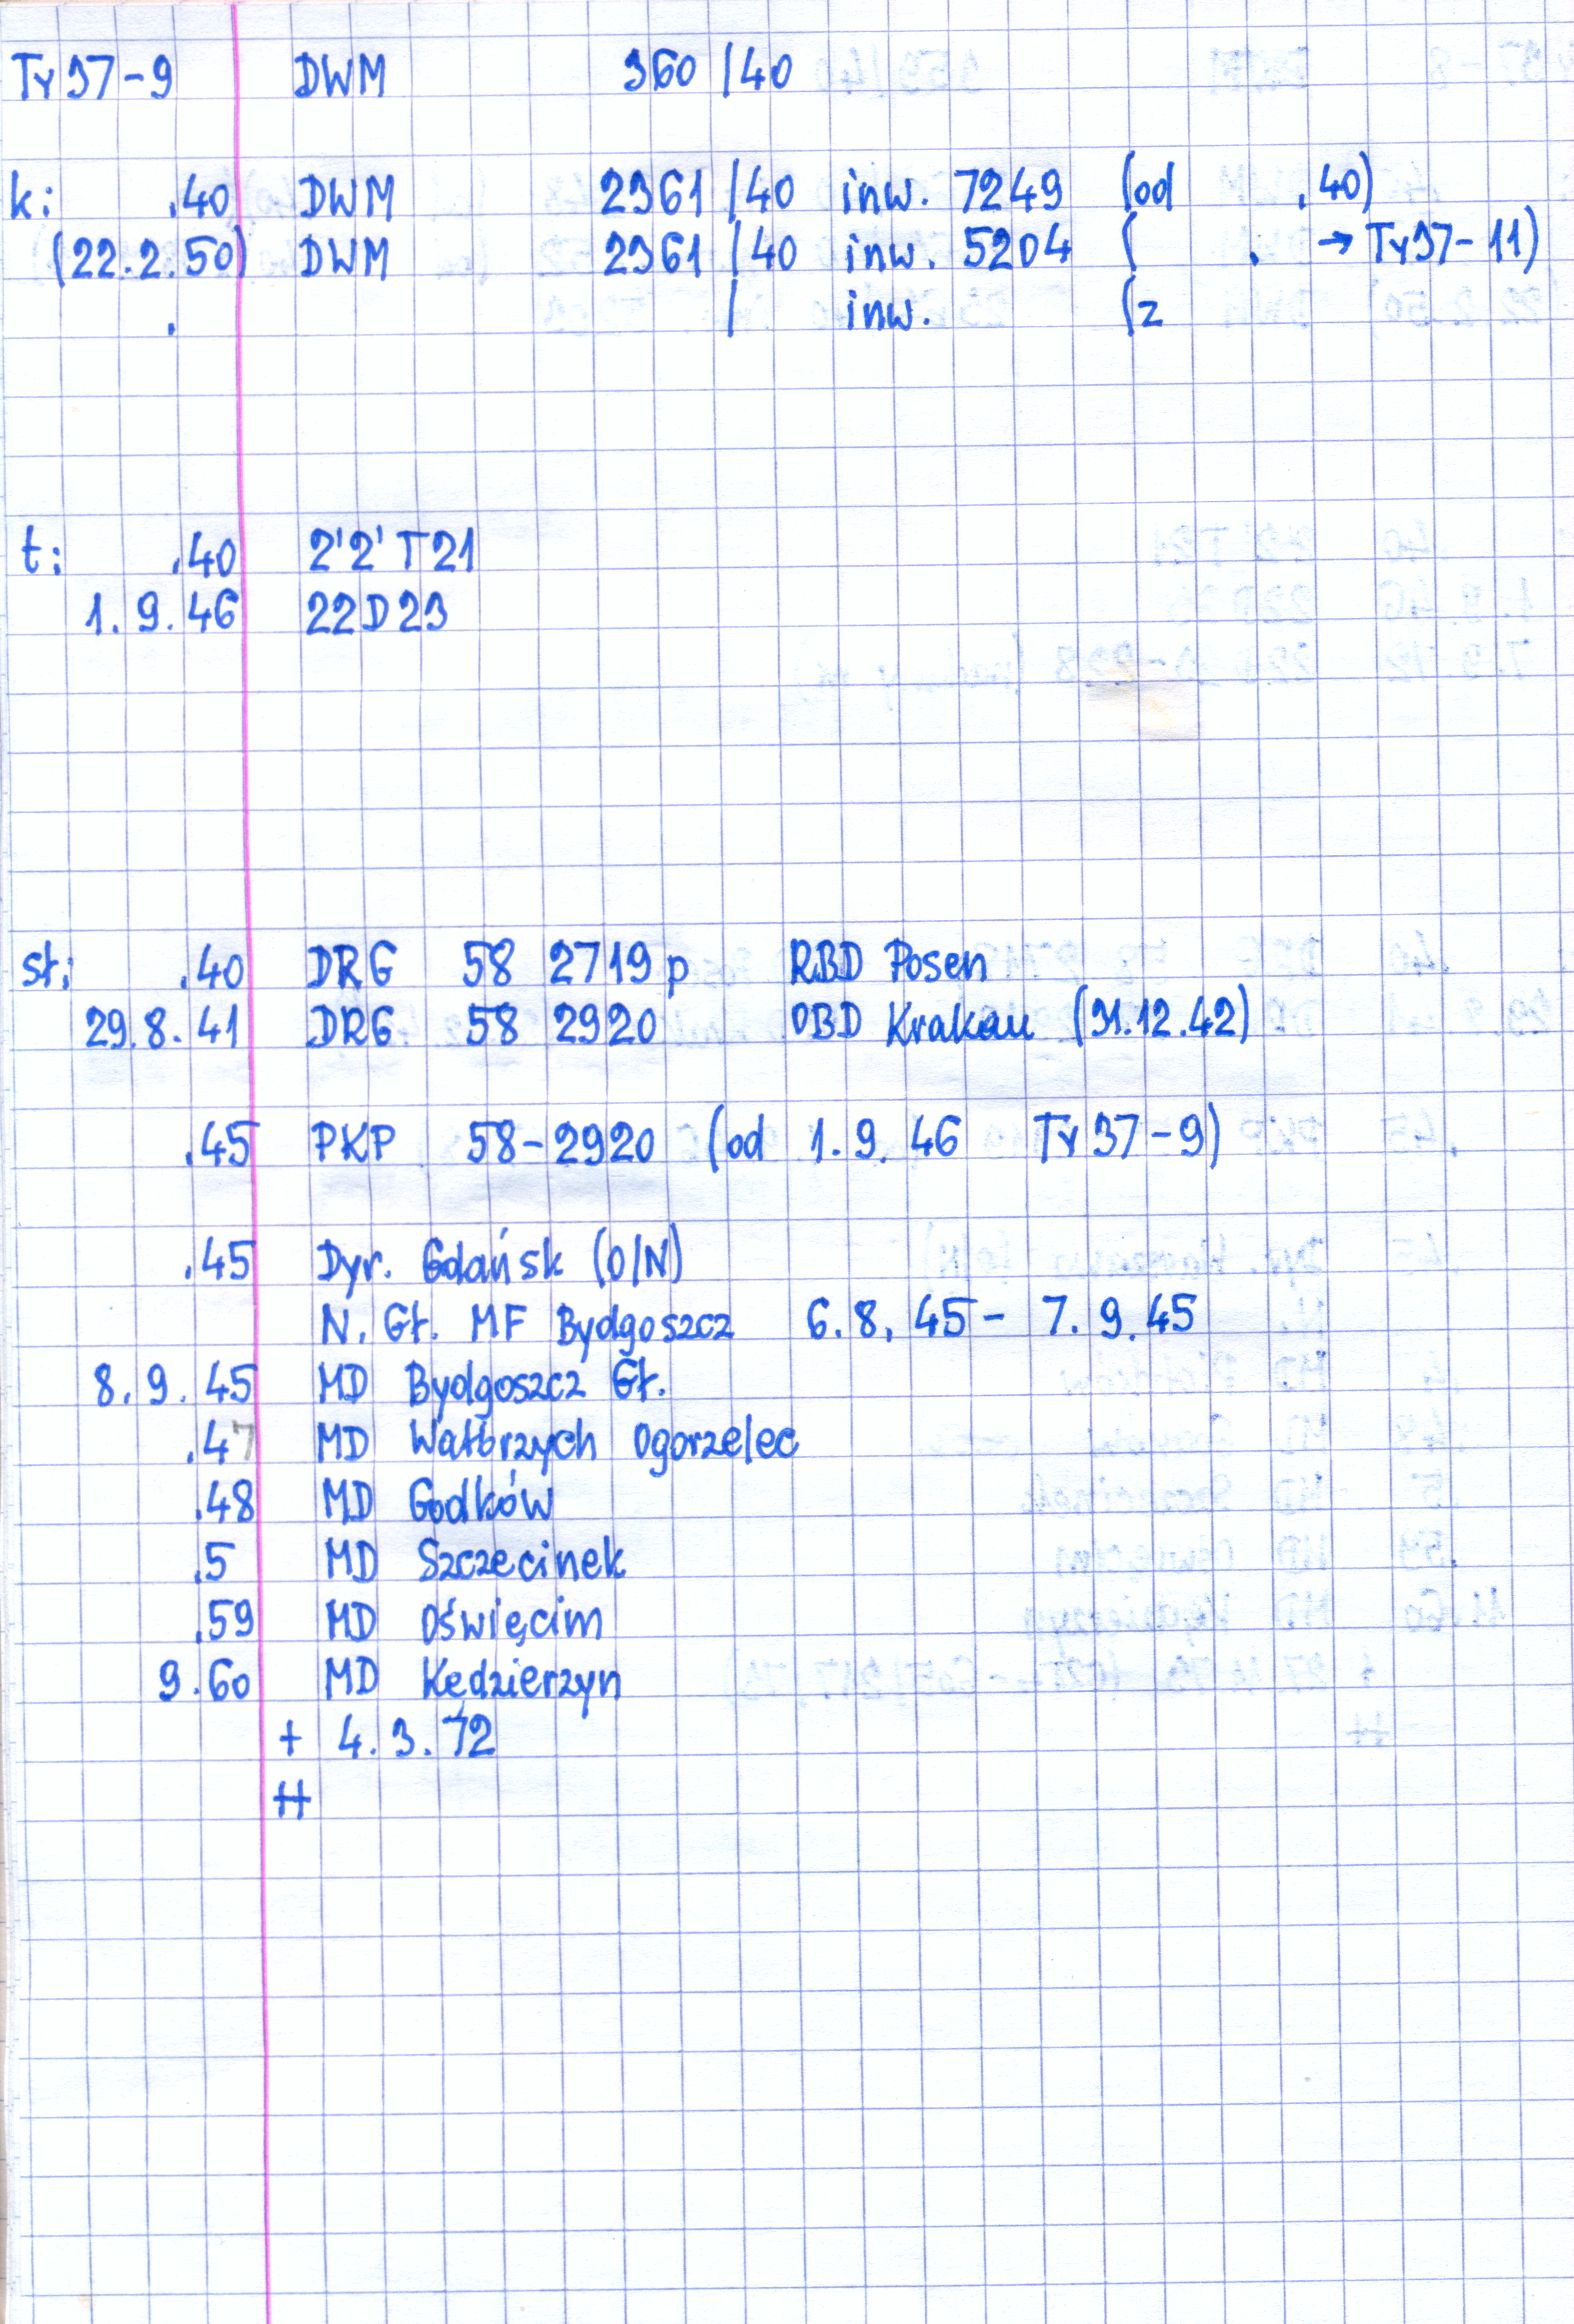 Ty37-9 DWM 360/40
k: .40 DWM 2361/40 inw. 7249 (od .40)
(22.2.50) DWM 2361/40 inw. 5204 ( . → Ty37-11)
. / inw. (z
t: .40 2'2'T21
1.9.46 22D23
st: .40 DRG 58 2719p RBD Posen
29.8.41 DRG 58 2920 OBD Krakau (31.12.42)
.45 PKP 58-2920 (od 1.9.46 Ty37-9)
.45 Dyr. Gdańsk (O/N)
N. Gł. MF Bydgoszcz 6.8.45 - 7.9.45
8.9.45 MD Bydgoszcz Gł.
.47 MD Wałbrzych Ogorzelec
.48 MD Godków
.5 MD Szczecinek
.59 MD Oświęcim
9.60 MD Kędzierzyn
+ 4.3.72
++